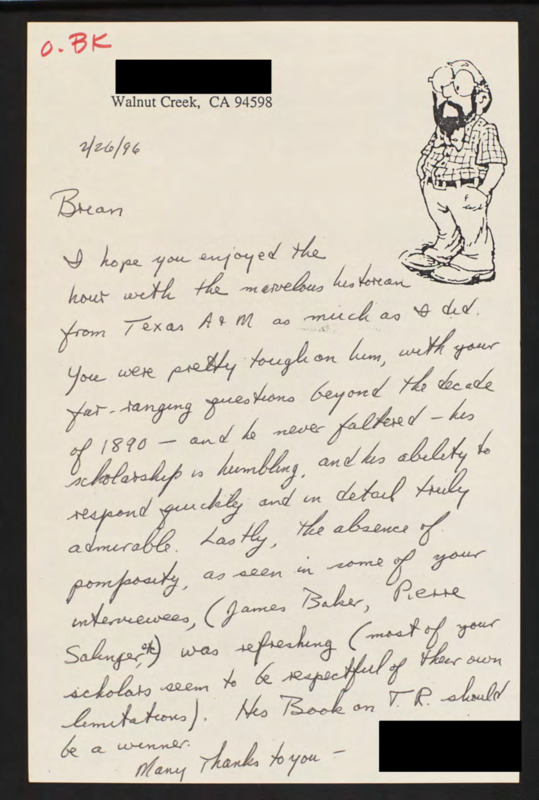 O. BK
Walnut Creek, CA 94598
2/26/96
Brian
I hope you enjoyed the
hour with the marvelous historian
from Texas A & M as much as I did.
You were pretty tough on him, with your
far-ranging questions beyond the decade
of 1890 – and he never faltered – his
scholarship is humbling, and his ability to
respond quickly and in detail truly
admirable. Lastly, the absence of
pomposity, as seen in some of your
interviewees, (James Baker, Pierre
Salinger, etc.) was refreshing (most of your
scholars seem to be respectful of their own
limitations). His Book on T.R. should
be a winner.
Many Thanks to you –